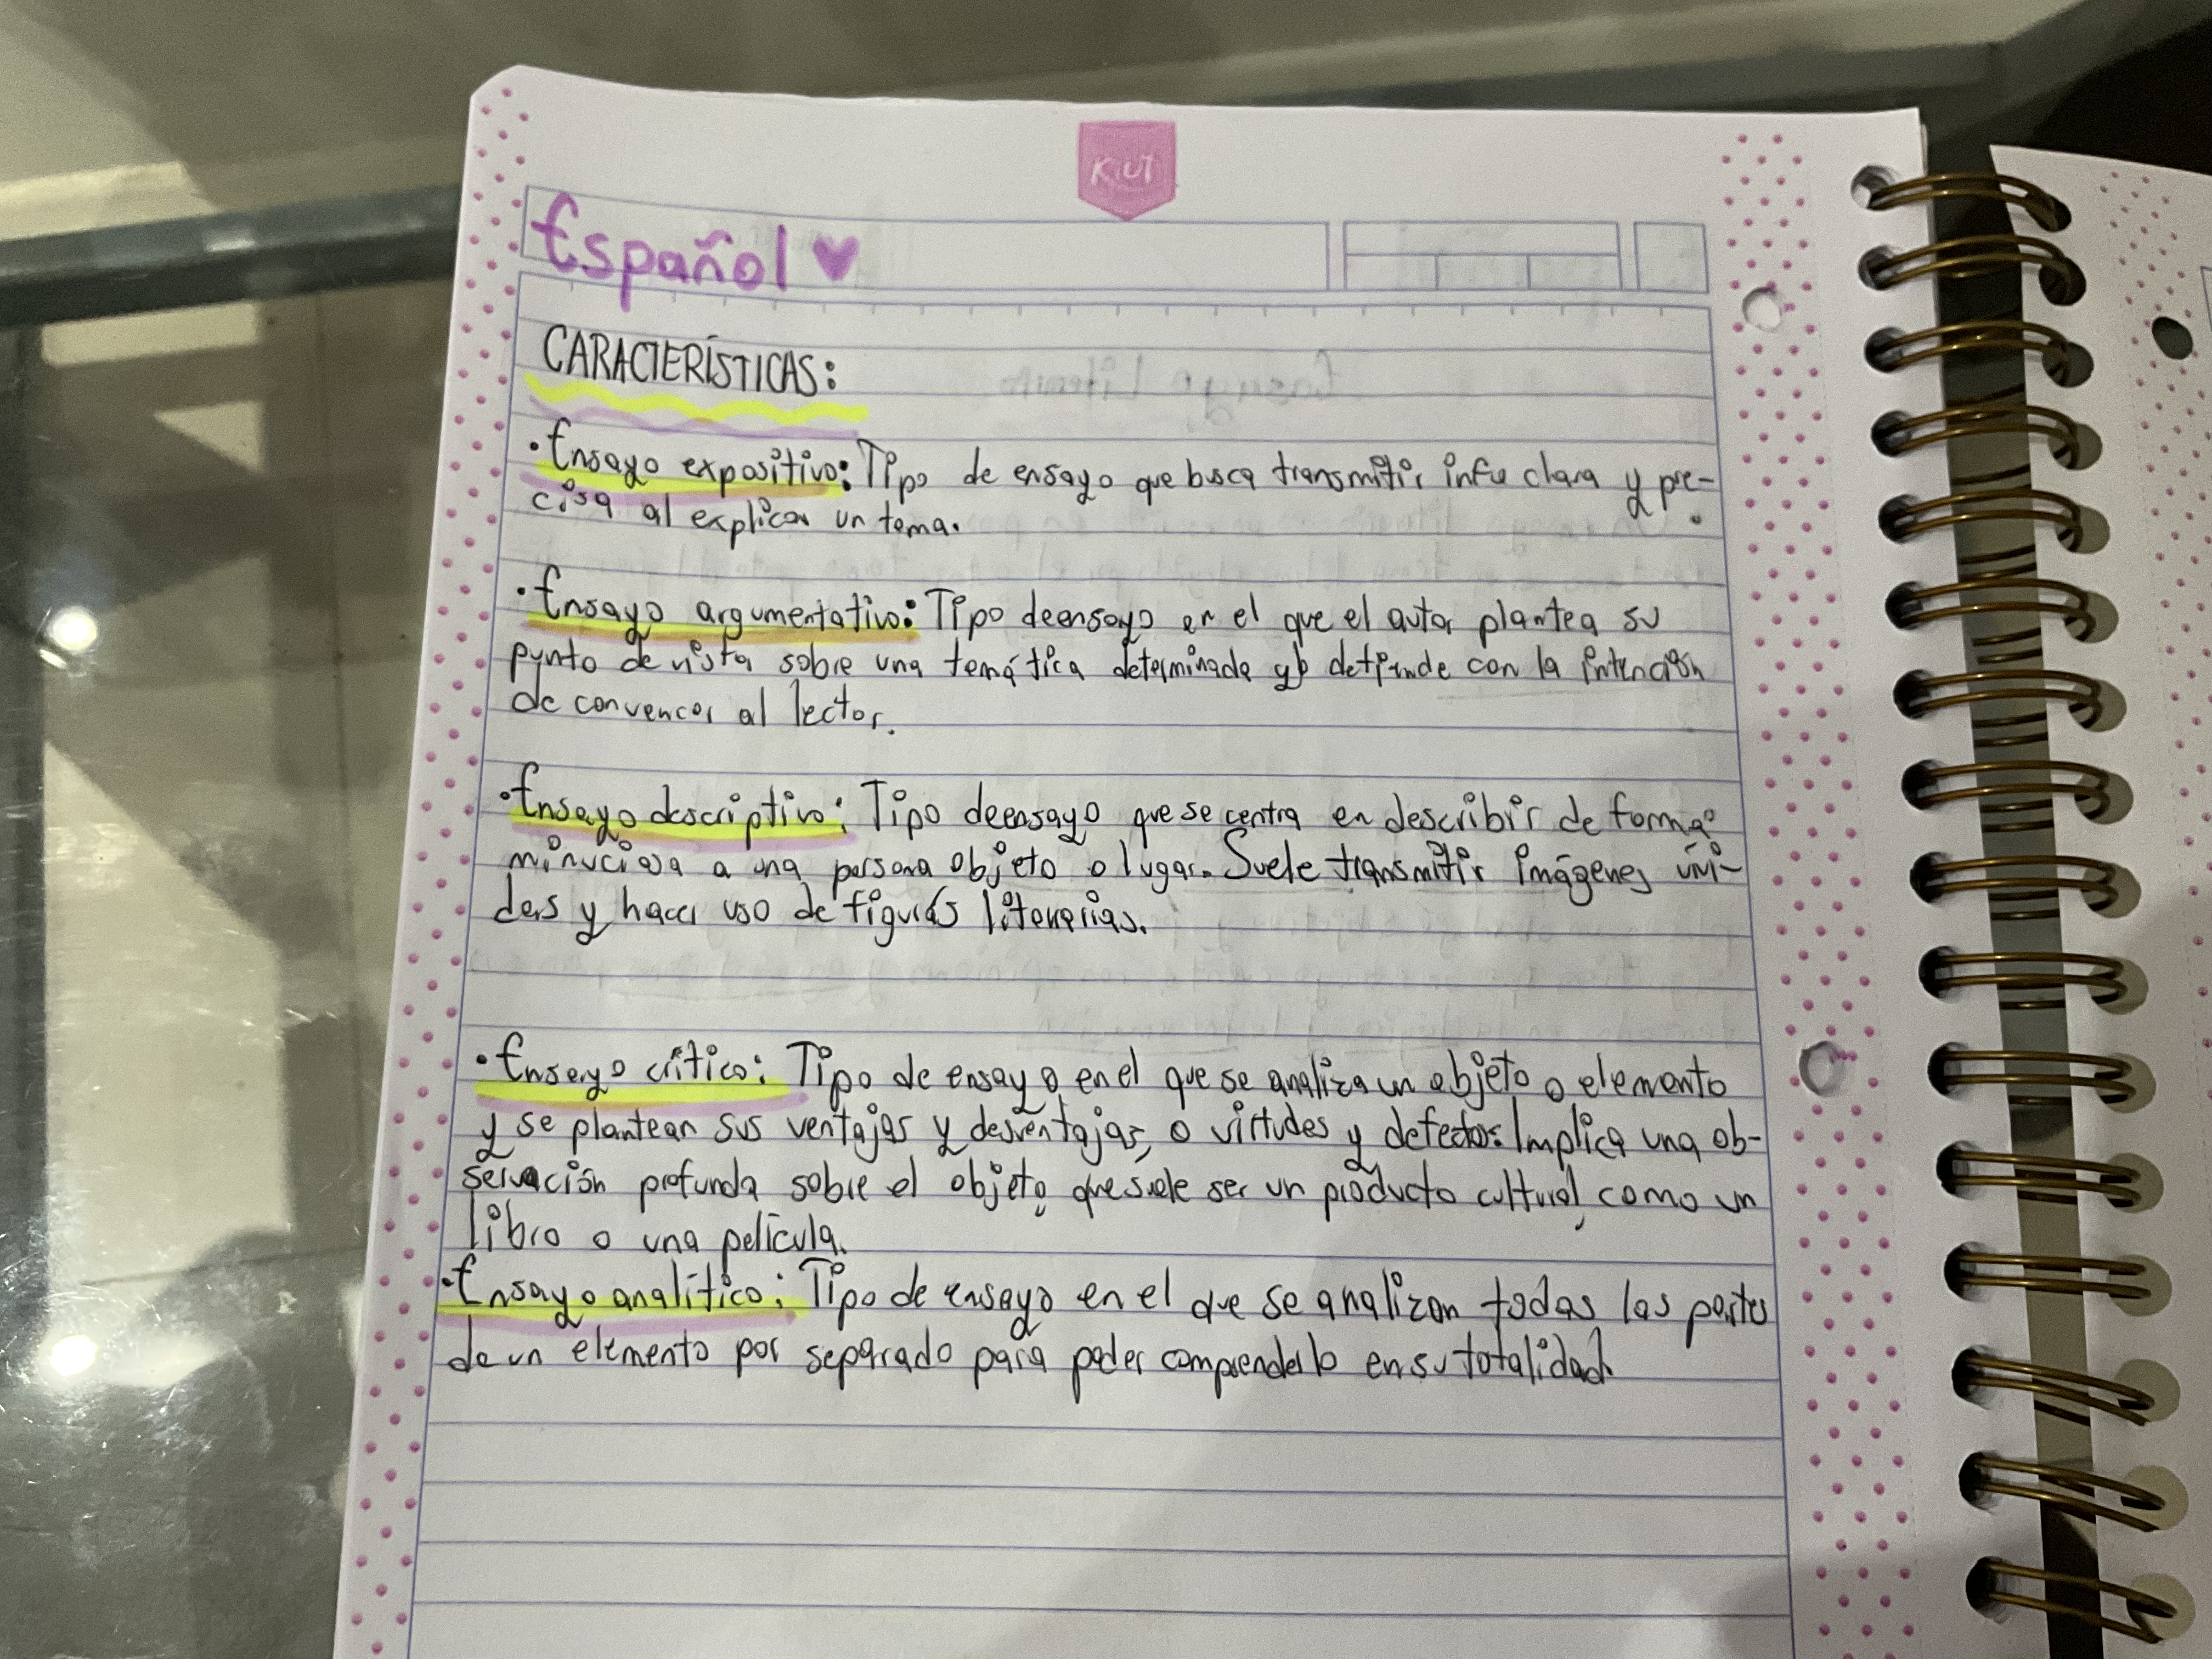 KIUT
Español
CARACTERÍSTICAS:
• Ensayo expositivo: Tipo de ensayo que busca transmitir info clara y pre-
cisa al explicar un tema.
• Ensayo argumentativo: Tipo de ensayo en el que el autor plantea su
punto de vista sobre una temática determinada y lo defiende con la intención
de convencer al lector.
• Ensayo descriptivo: Tipo de ensayo que se centra en describir de forma
minuciosa a una persona objeto o lugar. Suele transmitir imágenes vívi-
das y hacer uso de figuras literarias.
• Ensayo crítico: Tipo de ensayo en el que se analiza un objeto o elemento
y se plantean sus ventajas y desventajas, o virtudes y defectos. Implica una ob-
servación profunda sobre el objeto, que suele ser un producto cultural, como un
libro o una película.
• Ensayo analítico: Tipo de ensayo en el que se analizan todas las partes
de un elemento por separado para poder comprenderlo en su totalidad.